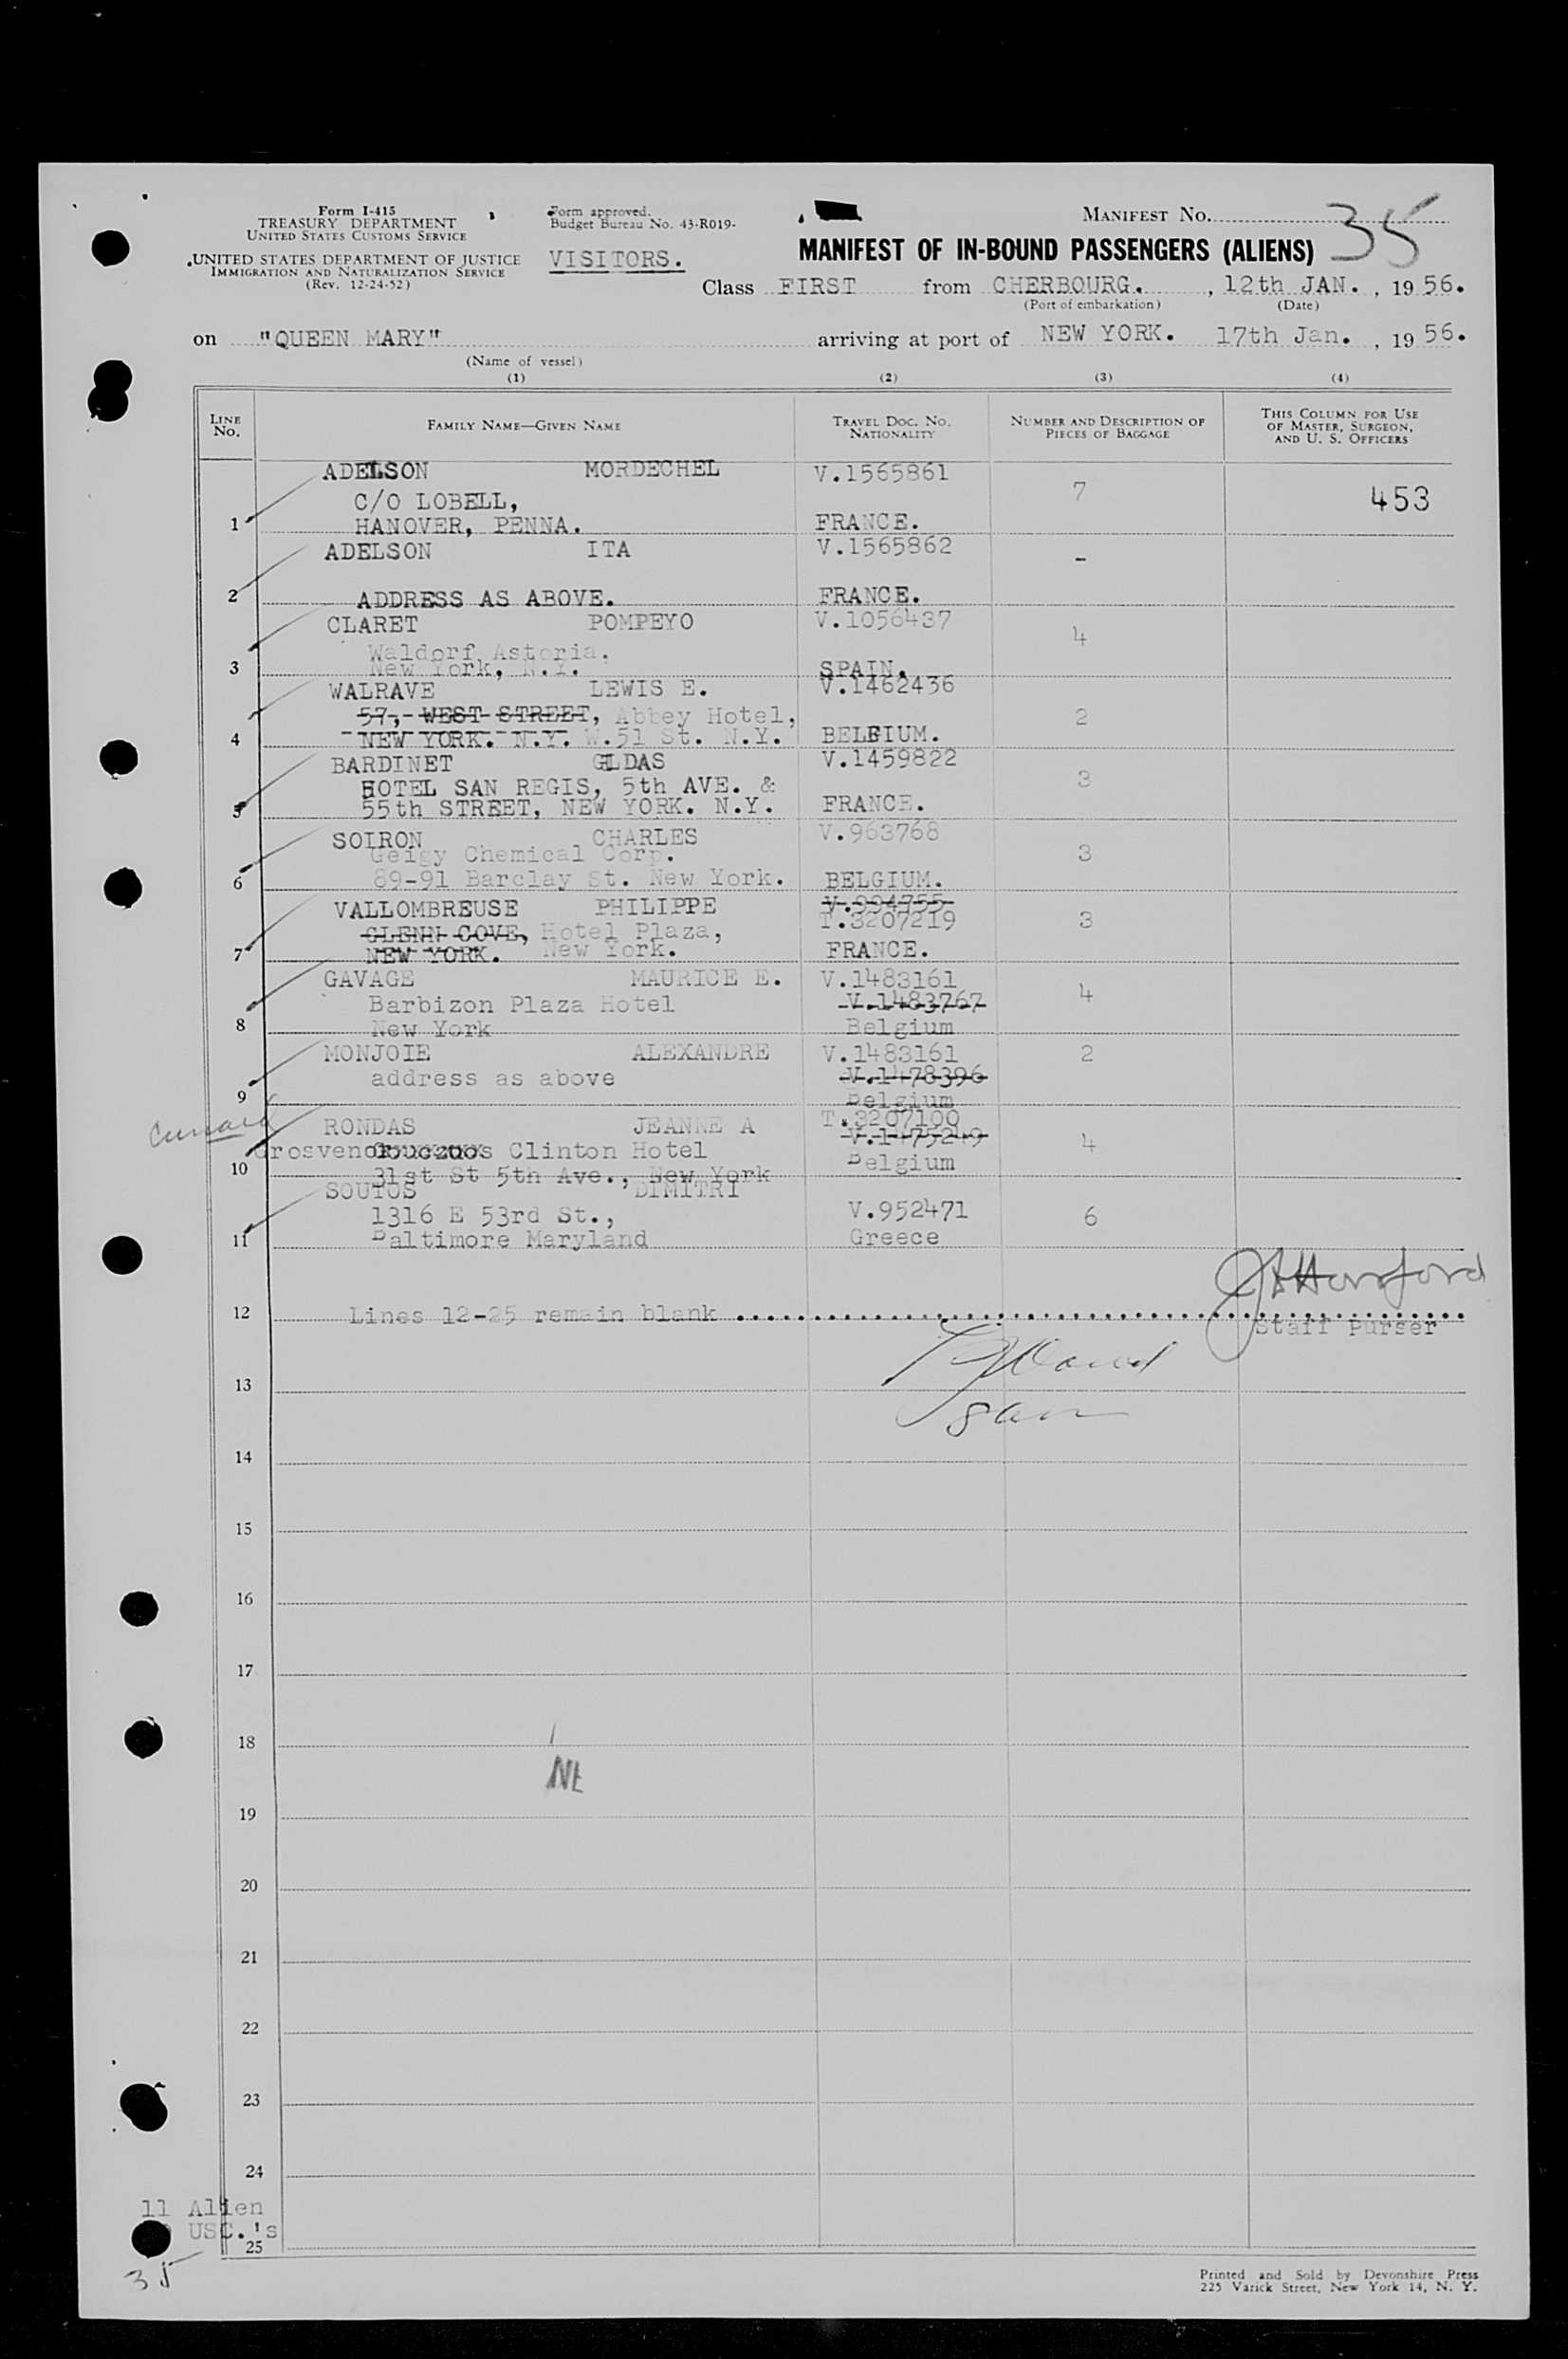 Form I-415
TREASURY DEPARTMENT
UNITED STATES CUSTOMS SERVICE
UNITED STATES DEPARTMENT OF JUSTICE
IMMIGRATION AND NATURALIZATION SERVICE
(Rev. 12-24-52)
Form approved.
Budget Bureau No. 43-R019-
VISITORS.
MANIFEST NO. 35
MANIFEST OF IN-BOUND PASSENGERS (ALIENS)
Class FIRST from CHERBOURG. , 12th JAN. , 19 56.
(Port of embarkation) (Date)
on "QUEEN MARY" arriving at port of NEW YORK. 17th Jan. , 19 56.
(Name of vessel)
(1) (2) (3) (4)
LINE NO. FAMILY NAME—GIVEN NAME TRAVEL DOC. NO. NATIONALITY NUMBER AND DESCRIPTION OF PIECES OF BAGGAGE THIS COLUMN FOR USE OF MASTER, SURGEON, AND U. S. OFFICERS
ADELSON MORDECHEL V.1565861
C/O LOBELL, 7 453
1 HANOVER, PENNA. FRANCE.
ADELSON ITA V.1565862
-
2 ADDRESS AS ABOVE. FRANCE.
CLARET POMPEYO V.1056437
Waldorf Astoria. 4
3 New York, N.Y. SPAIN.
WALRAVE LEWIS E. V.1462436
57, WEST STREET, Abbey Hotel, 2
4 NEW YORK. N.Y. W.51 St. N.Y. BELGIUM.
BARDINET GILDAS V.1459822
HOTEL SAN REGIS, 5th AVE. & 3
5 55th STREET, NEW YORK. N.Y. FRANCE.
SOIRON CHARLES V.963768
Geigy Chemical Corp. 3
6 89-91 Barclay St. New York. BELGIUM.
V.994755
VALLOMBREUSE PHILIPPE T.3207219
GLENN COVE, Hotel Plaza, 3
7 NEW YORK. New York. FRANCE.
GAVAGE MAURICE E. V.1483161
Barbizon Plaza Hotel V.1483767 4
8 New York Belgium
MONJOIE ALEXANDRE V.1483161 2
address as above V.1478396
9 Belgium
Cunard
RONDAS JEANNE A T.3207100
V.1475249 4
Grosvenor Clinton Hotel Belgium
10 31st St 5th Ave., New York
SOUTOS DIMITRI
1316 E 53rd St., V.952471 6
11 Baltimore Maryland Greece
12 Lines 12-25 remain blank
Staff Purser
13
14
15
16
17
18
NE
19
20
21
22
23
24
11 Alien
USC.'s
25
35
Printed and Sold by Devonshire Press
225 Varick Street, New York 14, N. Y.